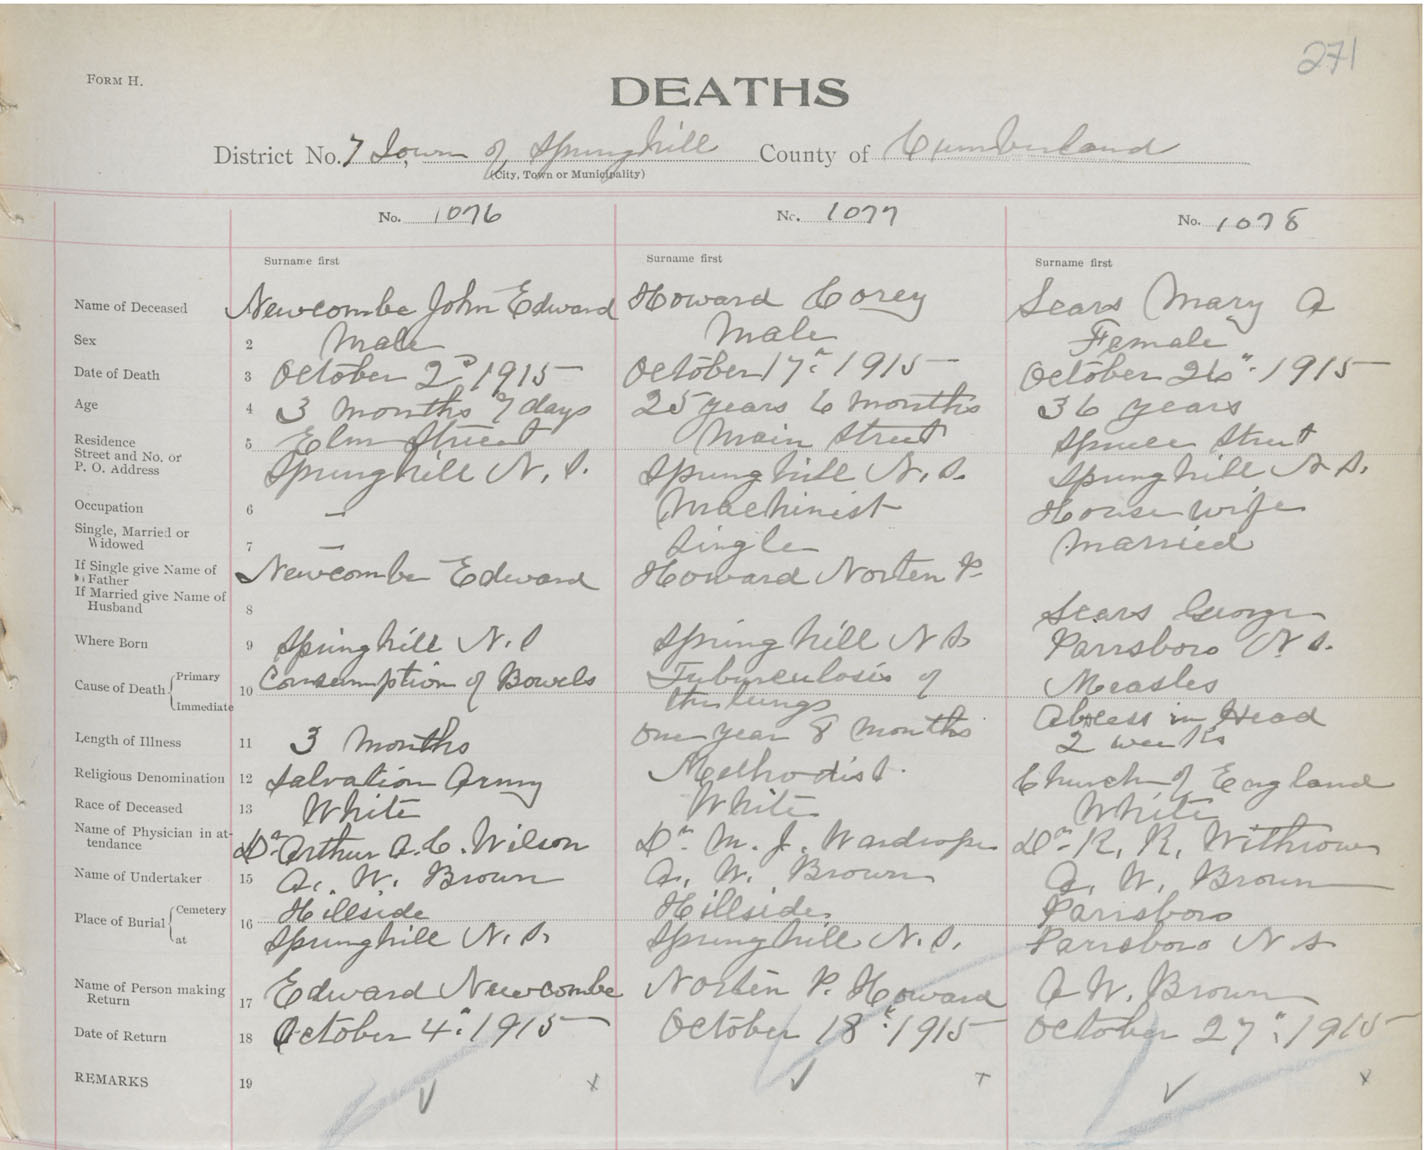 271
FORM H.
DEATHS
District No. 7 Town of Springhill County of Cumberland
(City, Town or Municipality)
No. 1076 No. 1077 No. 1078
Surname first Surname first Surname first
Name of Deceased Newcombe John Edward Howard Corey Sears Mary A
Sex 2 Male Male Female
Date of Death 3 October 2d 1915 October 17th 1915 October 26th 1915
Age 4 3 months 7 days 25 years 6 months 36 years
Residence 5 Elm Street Main Street Spruce Street
Street and No. or
P. O. Address Springhill N. S. Springhill N. S. Springhill N S.
Occupation 6 — Machinist House wife
Single, Married or
Widowed 7 — Single Married
If Single give Name of
Father Newcombe Edward Howard Norten P.
If Married give Name of
Husband 8 Sears George
Where Born 9 Springhill N. S Springhill N S. Parrsboro N. S.
Cause of Death { Primary 10 Consumption of Bowels Tuburculosis of Measles
Immediate the lungs Abcess in Head
Length of Illness 11 3 Months one year 8 months 2 weeks
Religious Denomination 12 Salvation Army Methodist. Church of England
Race of Deceased 13 White White White
Name of Physician in at-
tendance Dr. Arthur A. C. Wilson Dr. M. J. Wardrope Dr. R. K. Withrow
Name of Undertaker 15 A. W. Brown A. W. Brown A. W. Brown
Place of Burial { Cemetery 16 Hillside Hillside Parrsboro
at Springhill N. S. Springhill N. S. Parrsboro N S
Name of Person making
Return 17 Edward Newcombe Norten P. Howard A W. Brown
Date of Return 18 October 4th 1915 October 18th 1915 October 27th 1915
REMARKS 19